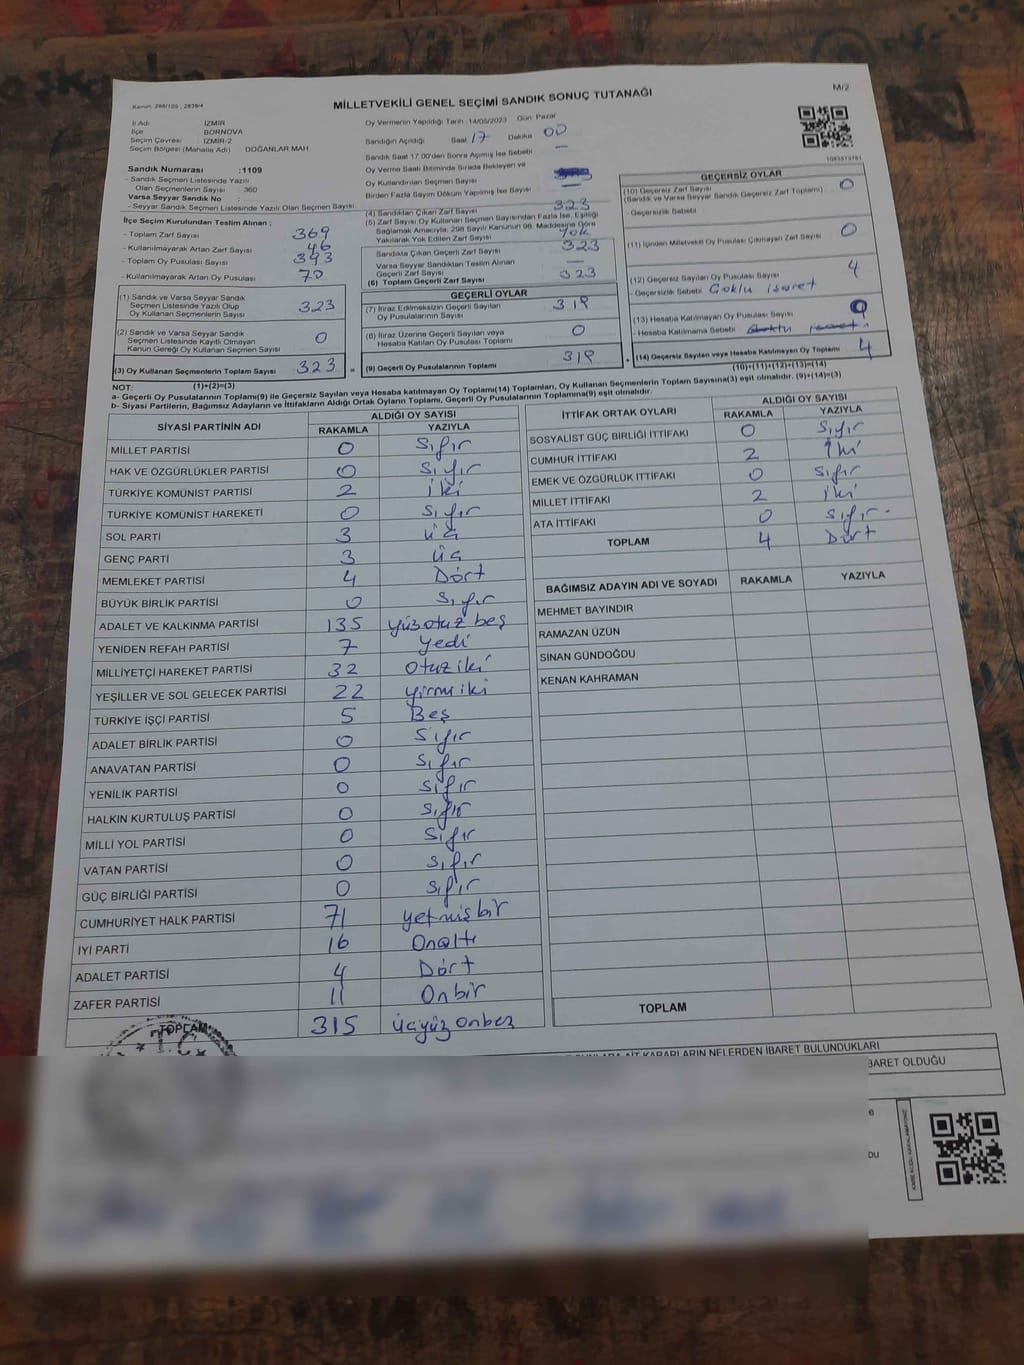 Kanun: 298/105 , 2839/4
MİLLETVEKİLİ GENEL SEÇİMİ SANDIK SONUÇ TUTANAĞI
M/2
İl Adı : İZMİR
İlçe : BORNOVA
Seçim Çevresi : İZMİR-2
Seçim Bölgesi (Mahalle Adı) : DOĞANLAR MAH
Sandık Numarası :1109
- Sandık Seçmen Listesinde Yazılı
Olan Seçmenlerin Sayısı 360
Varsa Seyyar Sandık No :
- Seyyar Sandık Seçmen Listesinde Yazılı Olan Seçmen Sayısı:
İlçe Seçim Kurulundan Teslim Alınan ;
- Toplam Zarf Sayısı 369
- Kullanılmayarak Artan Zarf Sayısı 46
- Toplam Oy Pusulası Sayısı 393
- Kullanılmayarak Artan Oy Pusulası 70
(1) Sandık ve Varsa Seyyar Sandık
Seçmen Listesinde Yazılı Olup
Oy Kullanan Seçmen Sayısı 323
(2) Sandık ve Varsa Seyyar Sandık
Seçmen Listesinde Kayıtlı Olmayan
Kanun Gereği Oy Kullanan Seçmen Sayısı 0
(3) Oy Kullanan Seçmenlerin Toplam Sayısı 323 =
(1)+(2)=(3)
Oy Vermenin Yapıldığı Tarih :14/05/2023 Gün Pazar
Sandığın Açıldığı Saat 17 Dakika 00
Sandık Saat 17.00'den Sonra Açılmış İse Sebebi —
Oy Verme Saati Bitiminde Sırada Bekleyen ve
Oy Kullandırılan Seçmen Sayısı
Birden Fazla Sayım Döküm Yapılmış İse Sayısı —
(4) Sandıktan Çıkan Zarf Sayısı 323
(5) Zarf Sayısı Oy Kullanan Seçmen Sayısından Fazla İse, Eşitliği
Sağlamak Amacıyla, 298 Sayılı Kanunun 98. Maddesine Göre
Yakılarak Yok Edilen Zarf Sayısı Yok
Sandıkta Çıkan Geçerli Zarf Sayısı 323
Varsa Seyyar Sandıktan Teslim Alınan
Geçerli Zarf Sayısı —
(6) Toplam Geçerli Zarf Sayısı 323
GEÇERLİ OYLAR
(7) İtiraz Edilmeksizin Geçerli Sayılan
Oy Pusulalarının Sayısı 319
(8) İtiraz Üzerine Geçerli Sayılan veya
Hesaba Katılan Oy Pusulası Toplamı 0
(9) Geçerli Oy Pusulalarının Toplamı 319 +
GEÇERSİZ OYLAR
(10) Geçersiz Zarf Sayısı
(Sandık ve Varsa Seyyar Sandık Geçersiz Zarf Toplamı) 0
- Geçersizlik Sebebi
(11) İçinden Milletvekili Oy Pusulası Çıkmayan Zarf Sayısı 0
(12) Geçersiz Sayılan Oy Pusulası Sayısı 4
- Geçersizlik Sebebi Çoklu işaret
(13) Hesaba Katılmayan Oy Pusulası Sayısı 0
- Hesaba Katılmama Sebebi
(14) Geçersiz Sayılan veya Hesaba Katılmayan Oy Toplamı 4
(10)+(11)+(12)+(13)=(14)
NOT:
a- Geçerli Oy Pusulalarının Toplamı(9) ile Geçersiz Sayılan veya Hesaba katılmayan Oy Toplamı(14) Toplamları, Oy Kullanan Seçmenlerin Toplam Sayısına(3) eşit olmalıdır. (9)+(14)=(3)
b- Siyasi Partilerin, Bağımsız Adayların ve İttifakların Aldığı Ortak Oyların Toplamı, Geçerli Oy Pusulalarının Toplamına(9) eşit olmalıdır.
SİYASİ PARTİNİN ADI ALDIĞI OY SAYISI
RAKAMLA YAZIYLA
MİLLET PARTİSİ 0 Sıfır
HAK VE ÖZGÜRLÜKLER PARTİSİ 0 Sıfır
TÜRKİYE KOMÜNİST PARTİSİ 2 iki
TÜRKİYE KOMÜNİST HAREKETİ 0 Sıfır
SOL PARTİ 3 üç
GENÇ PARTİ 3 üç
MEMLEKET PARTİSİ 4 Dört
BÜYÜK BİRLİK PARTİSİ 0 Sıfır
ADALET VE KALKINMA PARTİSİ 135 yüzotuz beş
YENİDEN REFAH PARTİSİ 7 Yedi
MİLLİYETÇİ HAREKET PARTİSİ 32 Otuz iki
YEŞİLLER VE SOL GELECEK PARTİSİ 22 yirmi iki
TÜRKİYE İŞÇİ PARTİSİ 5 Beş
ADALET BİRLİK PARTİSİ 0 Sıfır
ANAVATAN PARTİSİ 0 Sıfır
YENİLİK PARTİSİ 0 Sıfır
HALKIN KURTULUŞ PARTİSİ 0 Sıfır
MİLLİ YOL PARTİSİ 0 Sıfır
VATAN PARTİSİ 0 Sıfır
GÜÇ BİRLİĞİ PARTİSİ 0 Sıfır
CUMHURİYET HALK PARTİSİ 71 yetmiş bir
İYİ PARTİ 16 Onaltı
ADALET PARTİSİ 4 Dört
ZAFER PARTİSİ 11 Onbir
TOPLAM 315 üçyüz onbeş
İTTİFAK ORTAK OYLARI ALDIĞI OY SAYISI
RAKAMLA YAZIYLA
SOSYALİST GÜÇ BİRLİĞİ İTTİFAKI 0 Sıfır
CUMHUR İTTİFAKI 2 İki
EMEK VE ÖZGÜRLÜK İTTİFAKI 0 Sıfır
MİLLET İTTİFAKI 2 iki
ATA İTTİFAKI 0 Sıfır
TOPLAM 4 Dört
BAĞIMSIZ ADAYIN ADI VE SOYADI RAKAMLA YAZIYLA
MEHMET BAYINDIR
RAMAZAN ÜZÜN
SİNAN GÜNDOĞDU
KENAN KAHRAMAN
TOPLAM
KARARLARIN NELERDEN İBARET BULUNDUKLARI
BARET OLDUĞU